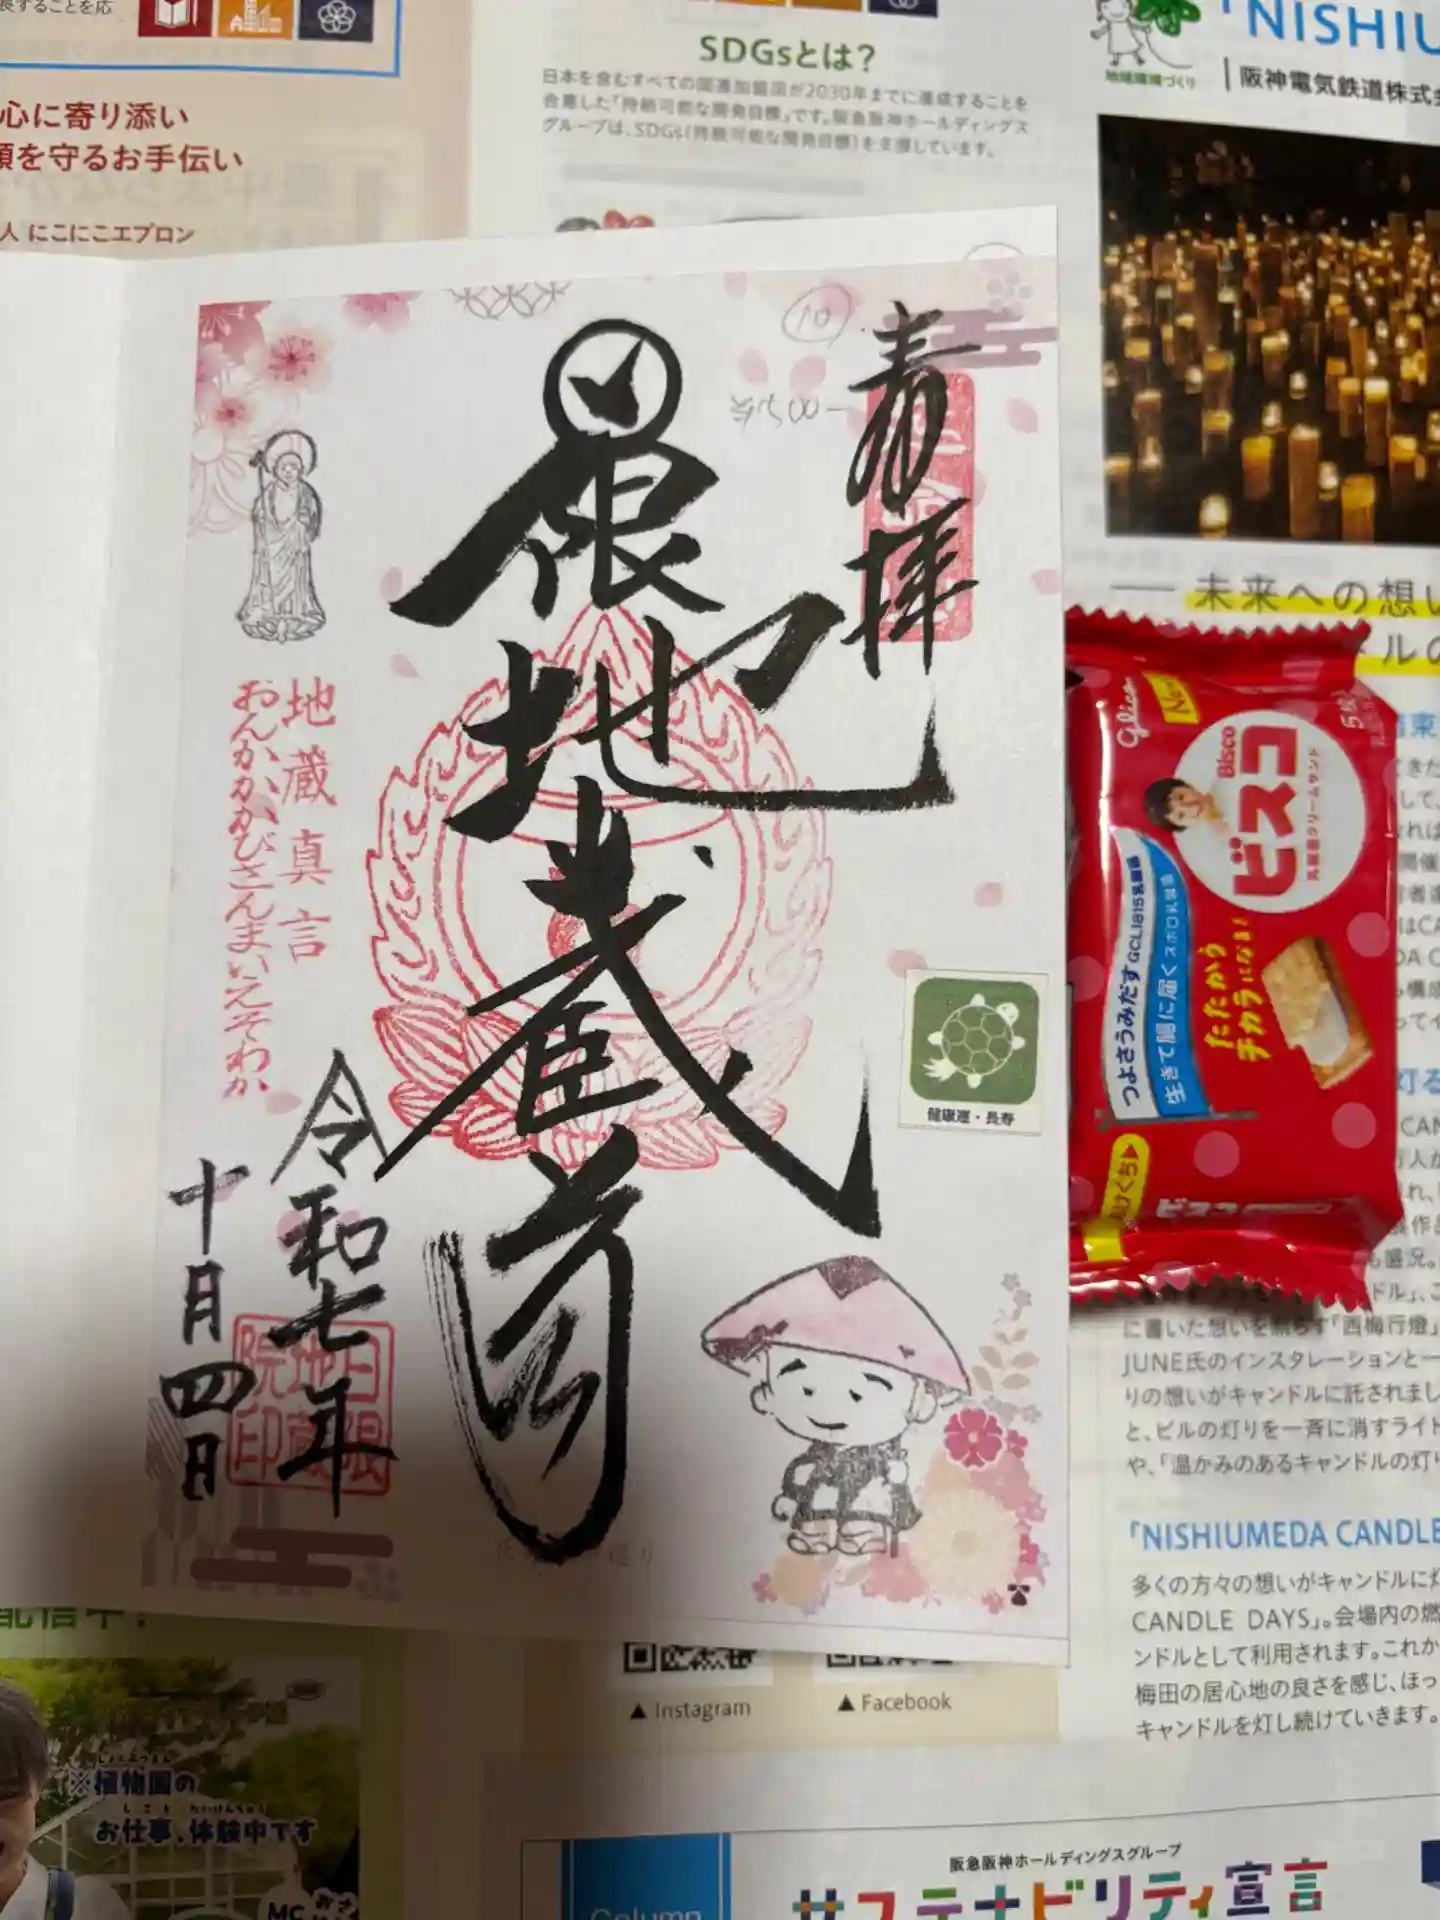 長することを応
心に寄り添い
顔を守るお手伝い
人 にこにこエプロン
SDGsとは?
日本を含むすべての国連加盟国が2030年までに達成することを
合意した「持続可能な開発目標」です。阪急阪神ホールディングス
グループは、SDGs(持続可能な開発目標)を支援しています。
地域環境づくり
「NISHIU
阪神電気鉄道株式会
未来への想い
ルの
10
奉拝
限地蔵尊
地蔵真言
おんかかかびさんまいえそわか
令和七年
十月四日
日限地蔵院印
健康運・長寿
glico
New
5枚
Bisco
ビスコ
乳酸菌クリームサンド
つよさうみだすGCL1815乳酸菌
生きて腸に届くスポロ乳酸菌
たたかう
チカラになる!
ビスコ
に書いた想いを照らす「西梅行燈」
JUNE氏のインスタレーションと一
りの想いがキャンドルに託されまし
と、ビルの灯りを一斉に消すライト
や、「温かみのあるキャンドルの灯り
「NISHIUMEDA CANDLE
多くの方々の想いがキャンドルに灯
CANDLE DAYS」。会場内の燃
ンドルとして利用されます。これか
梅田の居心地の良さを感じ、ほっ
キャンドルを灯し続けていきます。
配信中!
▲ Instagram
▲ Facebook
※植物園の
お仕事、体験中です
MC
阪急阪神ホールディングスグループ
サステナビリティ宣言
Column